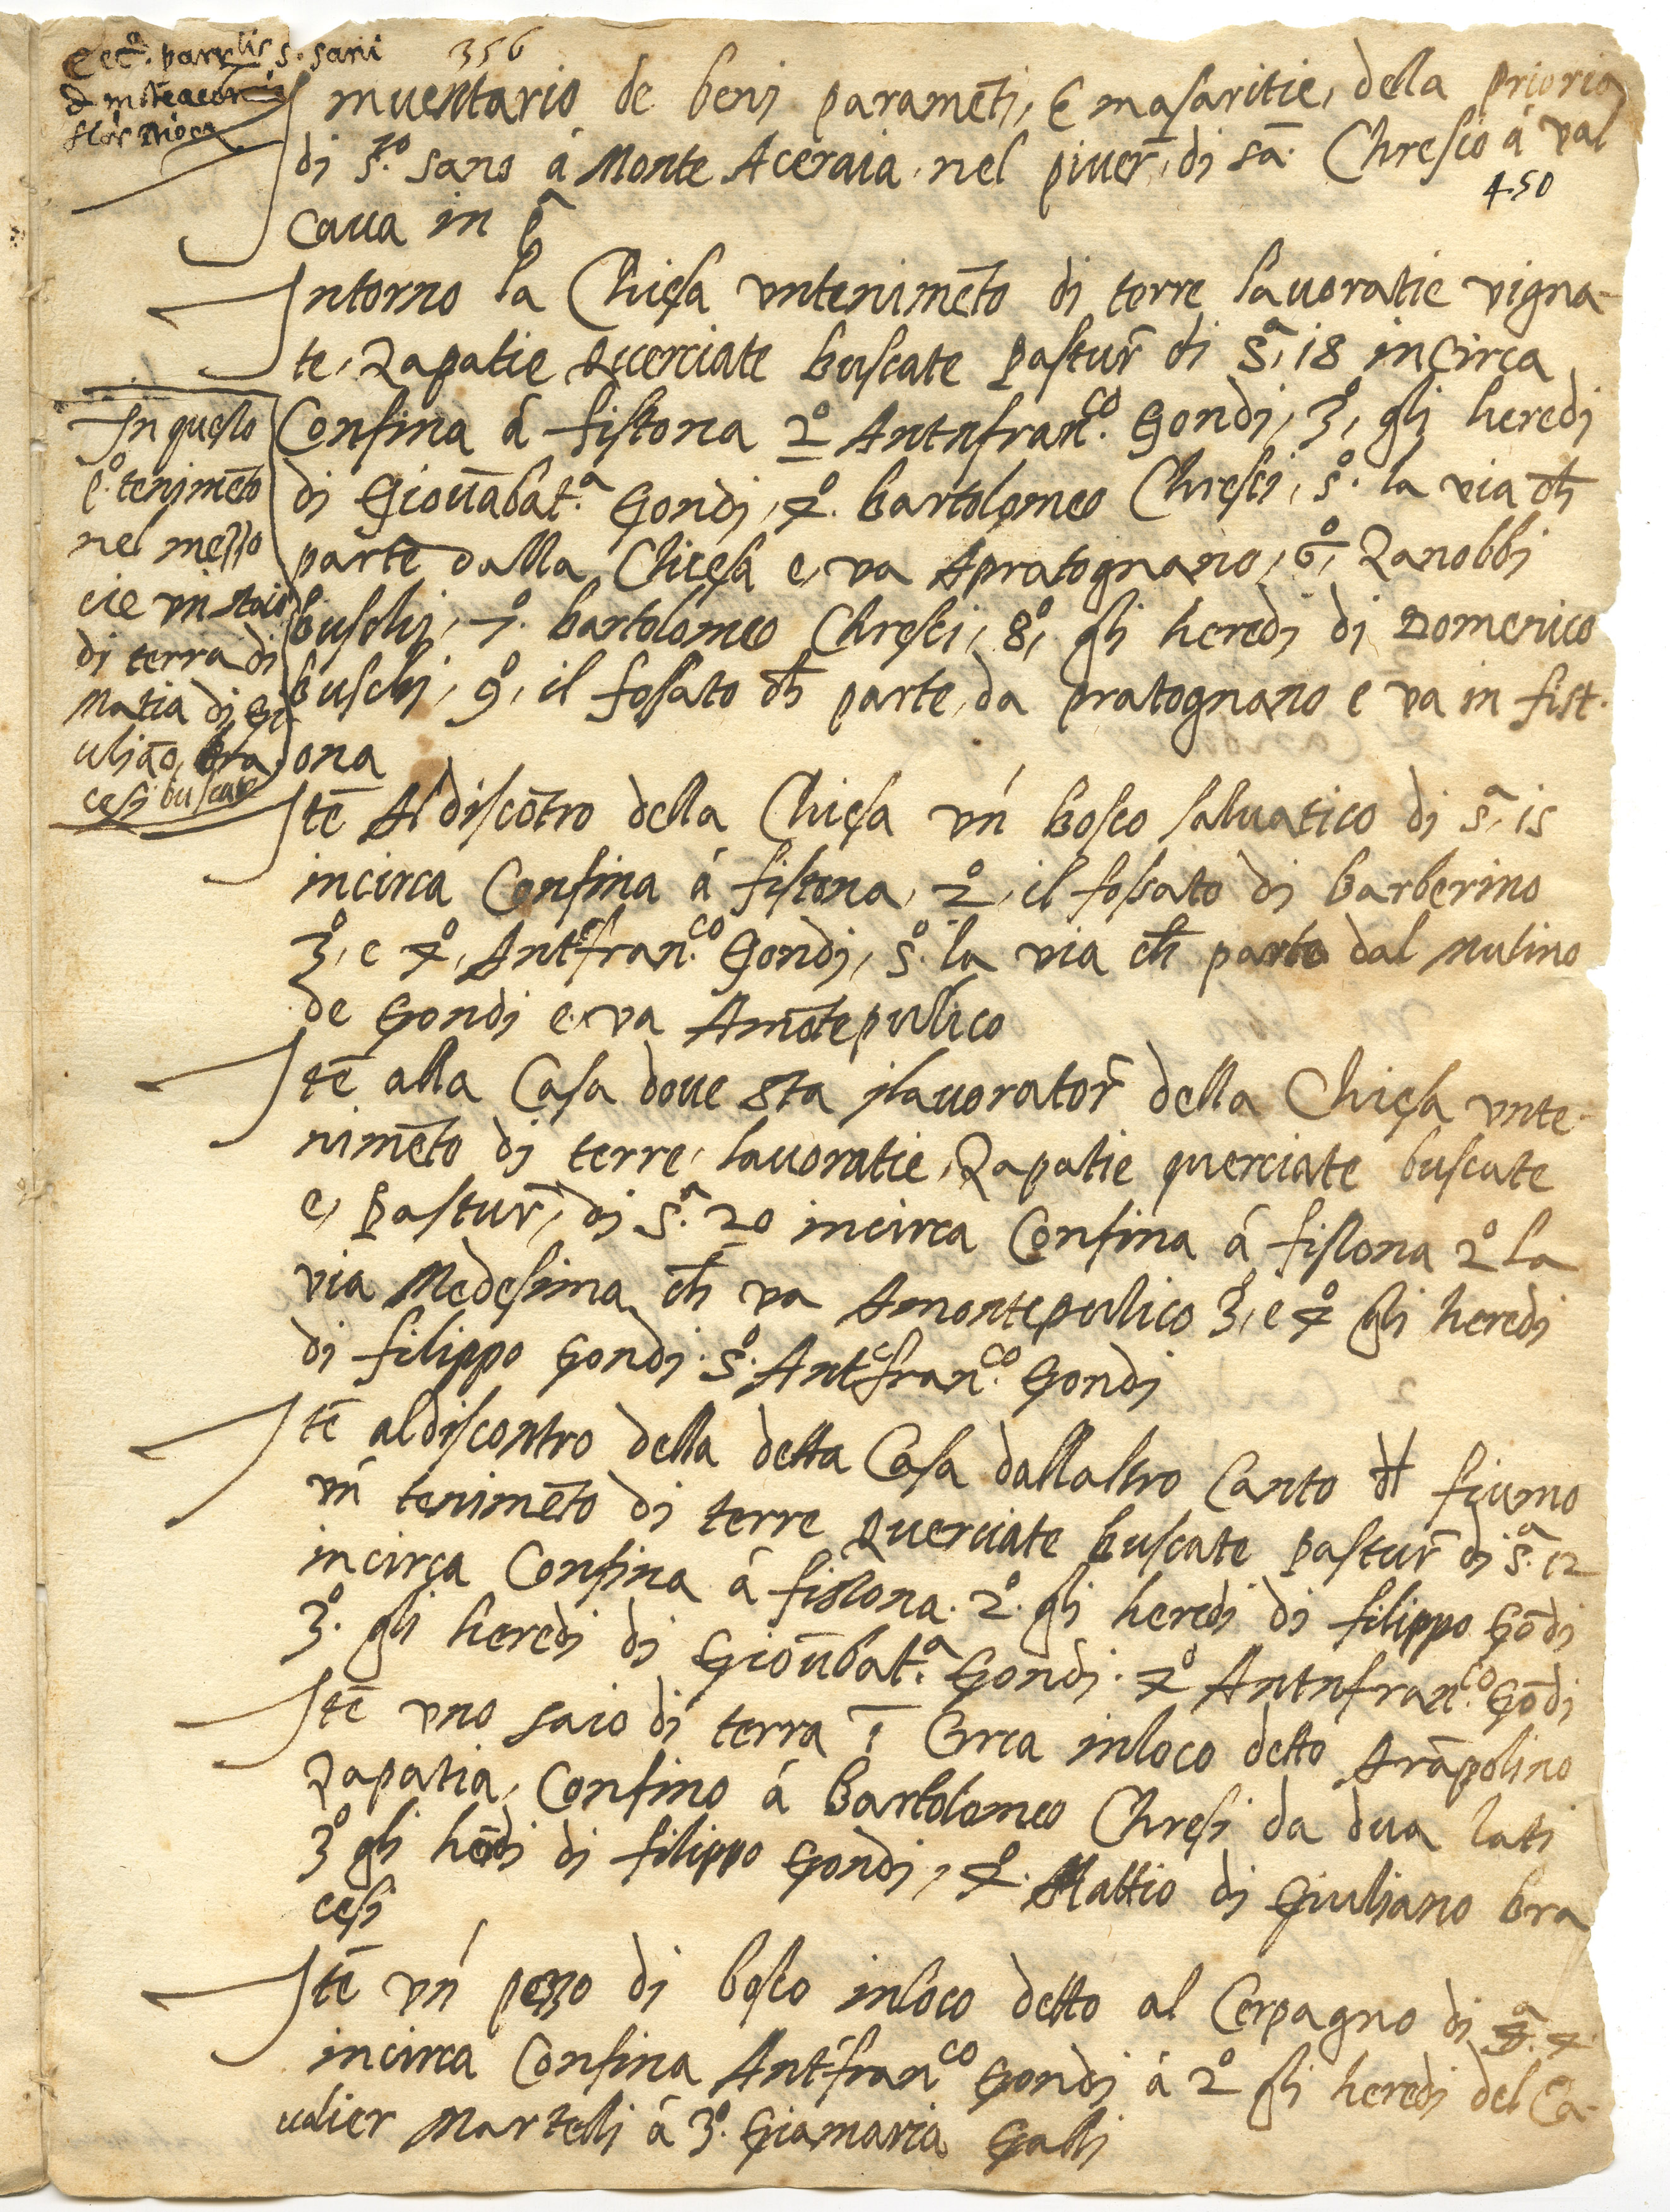 Ecc.ª par.lis s. sani
d monteaceraia
flor. dioc.
356
Inuentario de beni parameti, E masaritie, della prioria
di s.to sano á Monte Aceraia nel piuer, di sã. Chresco á val
450
caua in p̃
Intorno la Chiesa vntenimẽto di terre lauoratie vigna-
te, Zapatie Querciate buscate pastur̃ di s.ª 18 incirca
Confina á fistona 2º Antnfran.co Gondi, 3, gli heredi
di Giouãbat.ª Gondi, 4º. bartolomeo Chresci, 5º. la via ch̃
parte dalla Chiesa e, va Apratognano, 6º, Zanobbi
buschi, 7º. bartolomeo Chresci, 8º, gli heredi di Domenico
buschi, 9º, il fossato ch̃ parte da pratognano e va in fist-
ona
In questo
p.º tenimẽto
nel mezzo
cie vn staio
di terra di
Matia di Gi
uliano bra
cesi buscata
Itẽ Aldiscõtro della Chiesa vń bosco saluatico di s.ª 15
incirca Confina á fistona, 2º, il fossato di barberino
3º, e 4º, Antºfran.co Gondi, 5º. la via ch̃ parte dal Mulino
de Gondi e va Amõtepulico
Itẽ alla Casa doue sta ilauorator̃ della Chiesa vnte-
nimẽto di terre, lauoratie, Zapatie querciate buscate
e, pastur̃, di s.ª 20 incirca Confina á fistona 2º la
via Medesima ch̃ va Amontepulico 3º, e 4º gli heredi
di filippo Gondi. 5º. Antºfran.co Gondi
Itẽ aldiscontro della detta Casa dallaltro Canto dl fiume
vń tenimẽto di terre Querciate buscate pastur̃ di s.ª 12
incirca Confina á fistona. 2º. gli heredi di filippo Gõdi
3º. gli heredi di Gioũbat.ª Gondi. 4º Antnfran.co Gõdi
Itẽ vno saio di terra ĩ Circa inloco detto Arãpolino
Zapatia, Confino á Bartolomeo Chresi da dua lati
3º gli hẽdi di filippo Gondi, 4º. Mattio di Giuliano bra
cesi
Itẽ vń pezzo di bosco inloco detto al Cerpagno di s.ª 4
incirca Confina Antfran.co Gondi á 2º gli heredi del Ca-
ualier Martelli á 3º. Giamaria Galli